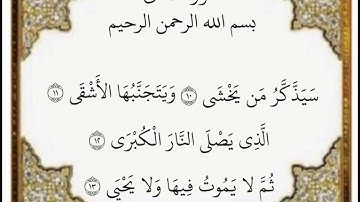 بسم الله الرحمن الرحيم
سَيَذَّكَّرُ مَن يَخْشَى ۝١٠ وَيَتَجَنَّبُهَا الأَشْقَى ۝١١
الَّذِى يَصْلَى النَّارَ الْكُبْرَى ۝١٢
ثُمَّ لا يَمُوتُ فِيهَا وَلا يَحْيَى ۝١٣